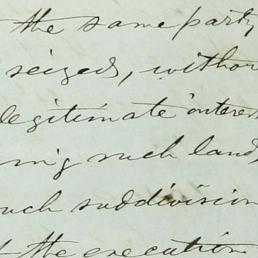 the same party
seized, withou
legitimate interes
ing such land,
uch subdivision
the execution